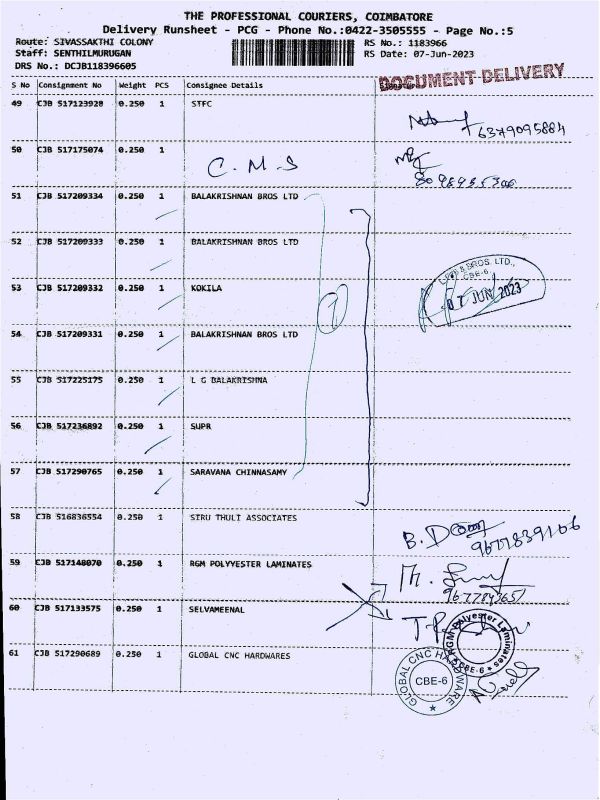 THE PROFESSIONAL COURIERS, COIMBATORE
Delivery Runsheet - PCG - Phone No.:0422-3505555 - Page No.:5
Route: SIVASSAKTHI COLONY
RS No.: 1183966
Staff: SENTHILMURUGAN
RS Date: 07-Jun-2023
DRS No.: DCJB118396605
DOCUMENT DELIVERY
S No Consignment No Weight PCS Consignee Details
49 CJB 517123928 0.250 1 STFC
6379095884
50 CJB 517175074 0.250 1 C.M.S
51 CJB 517209334 0.250 1 BALAKRISHNAN BROS LTD
52 CJB 517209333 0.250 1 BALAKRISHNAN BROS LTD
BROS. LTD.,
CBE-6
07 JUN 2023
53 CJB 517209332 0.250 1 KOKILA
7
54 CJB 517209331 0.250 1 BALAKRISHNAN BROS LTD
55 CJB 517225175 0.250 1 L G BALAKRISHNA
56 CJB 517236892 0.250 1 SUPR
57 CJB 517290765 0.250 1 SARAVANA CHINNASAMY
58 CJB 516836554 0.250 1 SIRU THULI ASSOCIATES
9677839106
59 CJB 517148070 0.250 1 RGM POLYYESTER LAMINATES
60 CJB 517133575 0.250 1 SELVAMEENAL
RGM Polyester Laminates
CBE-6
61 CJB 517290689 0.250 1 GLOBAL CNC HARDWARES
GLOBAL CNC HARDWARE
CBE-6